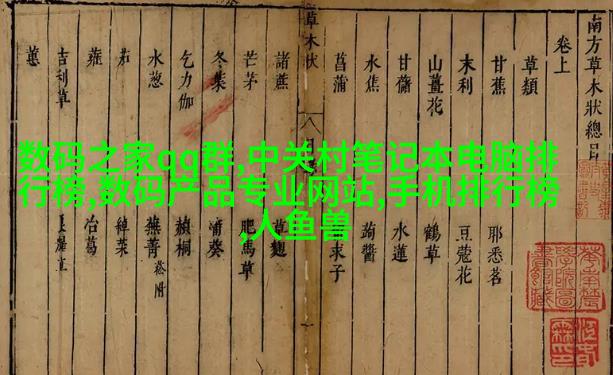 数码之家qq群,中关村笔记本电脑排
行榜,数码产品专业网站,手机排行榜
,人鱼兽
南方草木狀總目
卷上
草類
甘蕉 耶悉茗
末利 豆蔻花
山薑花 鶴草
甘藷 水蓮
水蕉 蒟醬
菖蒲 求子
草木狀
諸蔗 草麴
芒茅 肥馬草
冬葉 蒲葵
乞力伽 赬桐
水葱 蕪菁 菘附
茄 綽菜
蕹 冶葛
吉利草
蕙